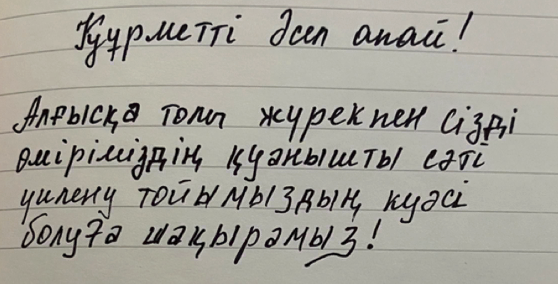 Құрметті Әсел апай!
Алғысқа толы жүрекпен сізді
өміріміздің қуанышты сәті
үилену тойымыздың куәсі
болуға шақырамыз!